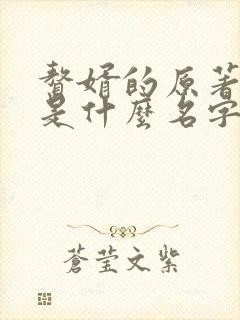 贅婿的原著
是什麼名字
蒼莹文紫